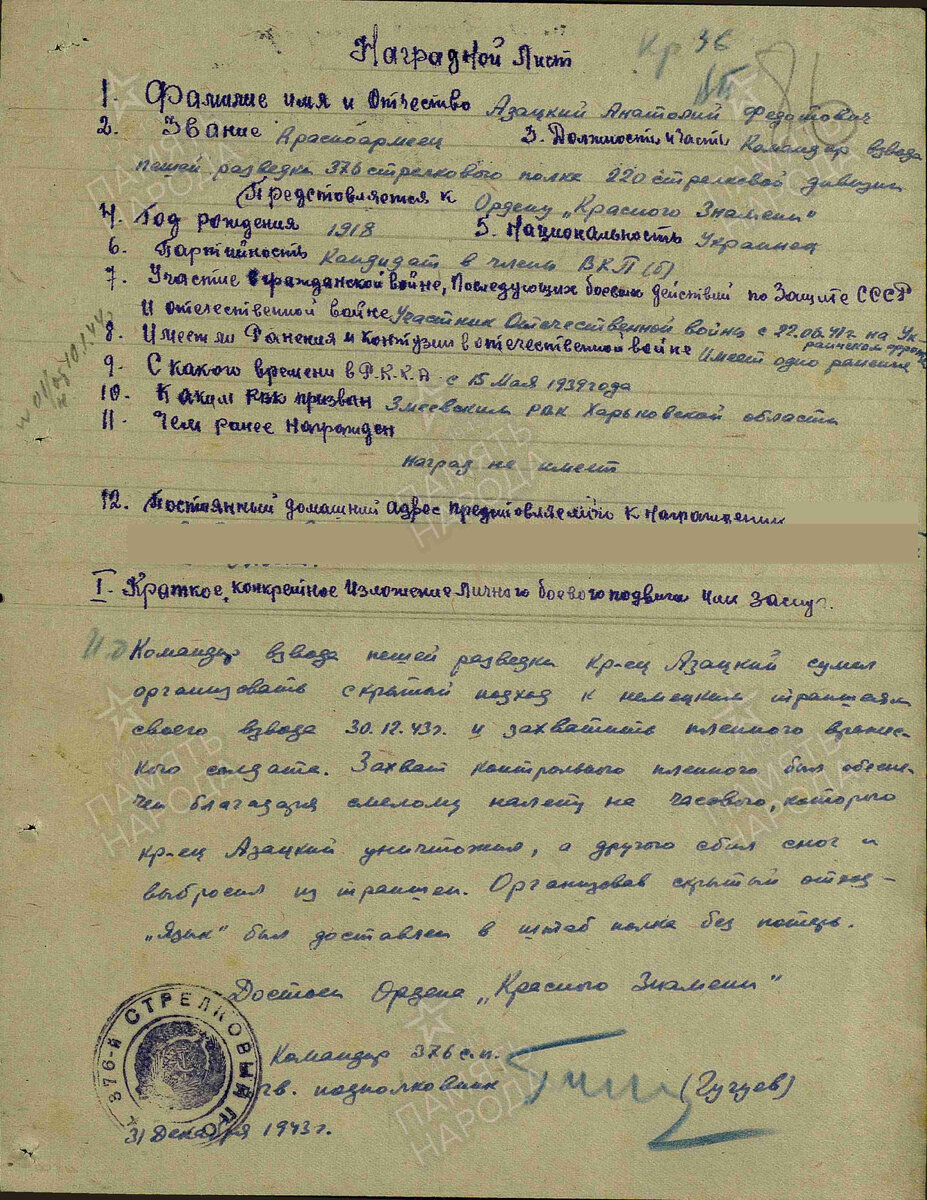 Наградной Лист
Кр 36
1. Фамилие имя и Отчество Азацкий Анатолий Федотович
2. Звание Красноармеец 3. Должность и часть Командир взвода
пешей разведки 376 стрелкового полка 220 стрелковой дивизии
Представляется к Ордену „Красного Знамени"
4. Год рождения 1918 5. Национальность Украинец
6. Партийность Кандидат в члены ВКП(б)
7. Участие в гражданской войне, Последующих боевых действий по Защите СССР
и отечественной войне Участник Отечественной войны с 22.06.41г. на Ук-
раинском фронте
8. Имеет ли Ранения и Контузии в отечественной войне Имеет одно ранение
9. С какого времени в Р.К.К.А с 15 Мая 1939 года
10. Каким РВК призван Змеевским рвк Харьковской области
11. Чем ранее награжден
наград не имеет
12. Постоянный домашний адрес представляемого к награждению
I. Краткое, конкрейное изложение личного боевого подвига или заслуг.
Командир взвода пешей разведки кр-ец Азацкий сумел
организовать скрытый подход к немецким траншеям
своего взвода 30.12.43г. и захватить пленного вражес-
кого солдата. Захват контрольного пленного был обеспе-
чен благодаря смелому налету на часового, которого
кр-ец Азацкий уничтожил, а другого сбил с ног и
выбросил из траншеи. Организовав скрытый отход –
„язык" был доставлен в штаб полка без потерь.
Достоин Ордена „Красного Знамени"
Командир 376 с.п.
гв. подполковник (Гугуев)
31 Декабря 1943г.
376-й СТРЕЛКОВЫЙ ПО
ПАМЯТЬ НАРОДА